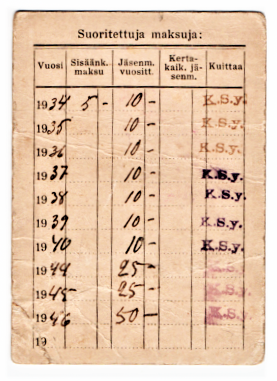 Suoritettuja maksuja:
Vuosi Sisäänk. maksu Jäsenm. vuositt. Kerta- kaik. jä- senm. Kuittaa
1934 5 - 10 - K.S.y.
1935 10 - K.S.y.
1936 10 - K.S.y.
1937 10 - K.S.y.
1938 10 - K.S.y.
1939 10 - K.S.y.
1940 10 - K.S.y.
1944 25 - K.S.y.
1945 25 - K.S.y.
1946 50 - K.S.y.
19